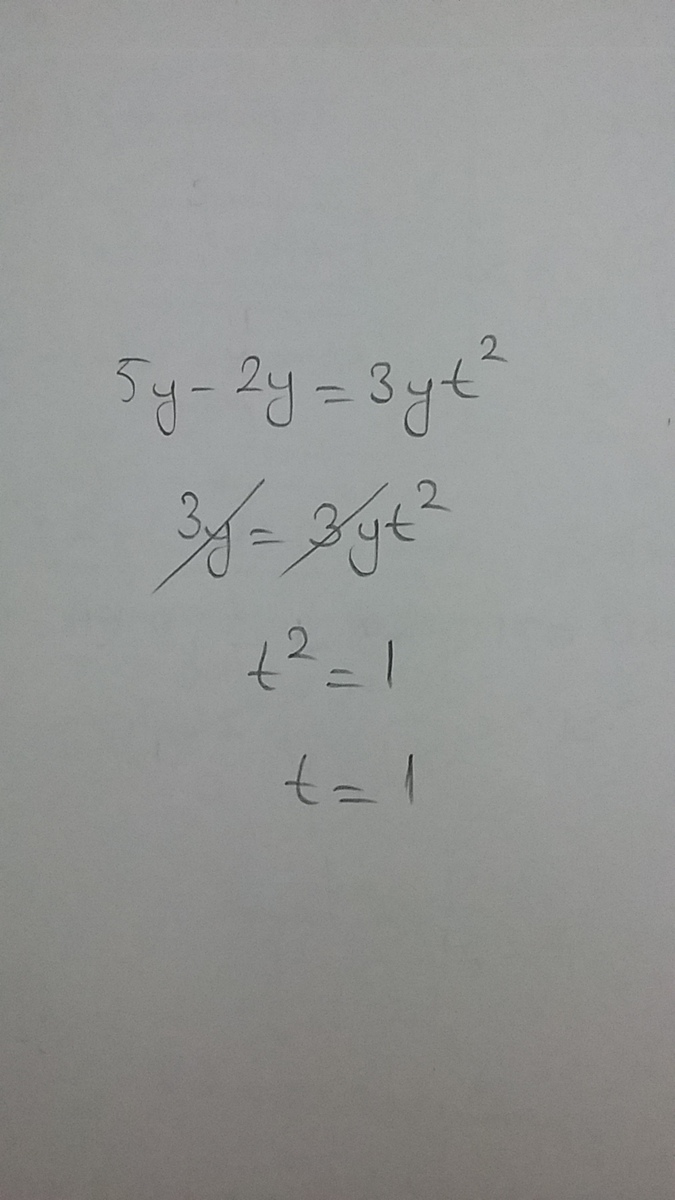 5y - 2y = 3yt²
3y = 3yt²
t² = 1
t = 1